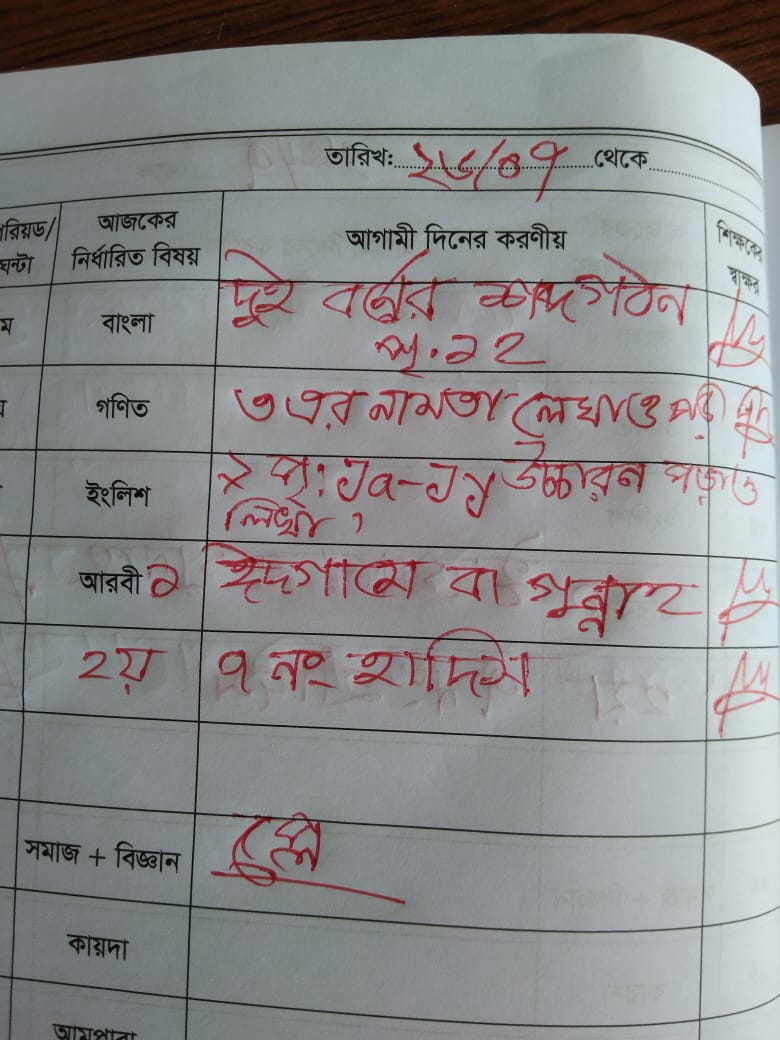 তারিখ: ২৮/০৭ থেকে
আজকের নির্ধারিত বিষয়
আগামী দিনের করণীয়
শিক্ষকের স্বাক্ষর
বাংলা
দুই বর্ণের শব্দগঠন
পৃ. ১২
গণিত
৩ এর নামতা লেখাও পড়া
ইংলিশ
পৃ: Ja-Jy উচ্চারন পড়াও
লিখা,
আরবী ১ ইদগামে বা গুন্নাহ
২য় ৭ নং হাদিস
প্লে
সমাজ + বিজ্ঞান
কায়দা
আমপারা